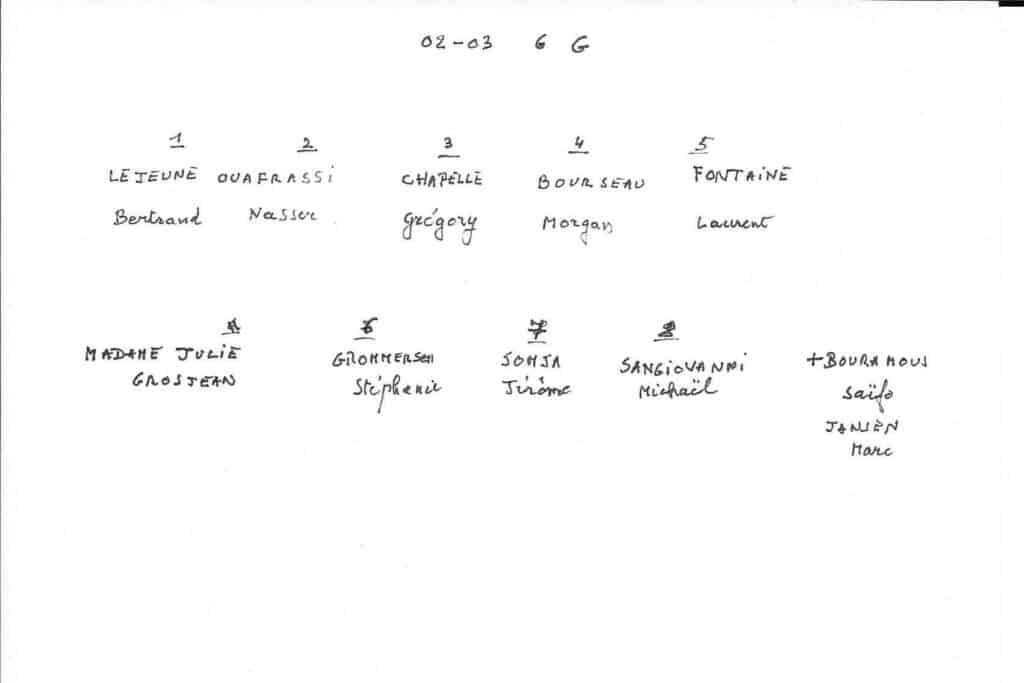 02-03 6 G
1 2 3 4 5
LEJEUNE OUAFRASSI CHAPELLE BOURSEAU FONTAINE
Bertrand Nasser Grégory Morgan Laurent
6 7 8
MADAME JULIE GROMMERSCH SOMJA SANGIOVANNI +BOURAMOUS
GROSJEAN Stéphanie Jérôme Michaël Saïfo
JANSEN
Marc